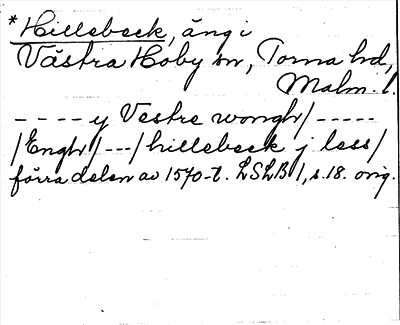 *Hillebeck, äng i
Västra Hoby sn, Torna hd,
Malm. l.
- - - - y Vestre wongh/ - - - - -
/Engh/ - - - /hillebeck j less/
förra delen av 1570-t. LSLB 1, s. 18. orig.